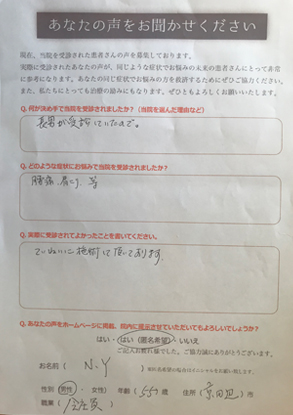 あなたの声をお聞かせください
現在、当院を受診された患者さんの声を募集しております。
実際に受診されたあなたの声が、同じような症状でお悩みの未来の患者さんにとって非常
に参考になります。あなたの同じ症状でお悩みの方を救済するためにぜひご協力ください。
また、私たちにとっても治療の励みにもなります。ぜひともよろしくお願いいたします。
Q. 何が決め手で当院を受診されましたか?(当院を選んだ理由など)
長男が受診していたので。
Q. どのような症状にお悩みで当院を受診されましたか?
腰痛、肩こり、等
Q. 実際に受診されてよかったことを書いてください。
ていねいに施術して頂いております。
Q. あなたの声をホームページに掲載、院内に掲示させていただいてもよろしいでしょうか?
はい・はい(匿名希望)・いいえ
ご記入お疲れ様でした。ご協力誠にありがとうございます。
お名前( N・Y )※匿名希望の場合はイニシャルをお願い致します。
性別(男性・女性) 年齢(55)歳 住所(京田辺)市
職業(会社員)